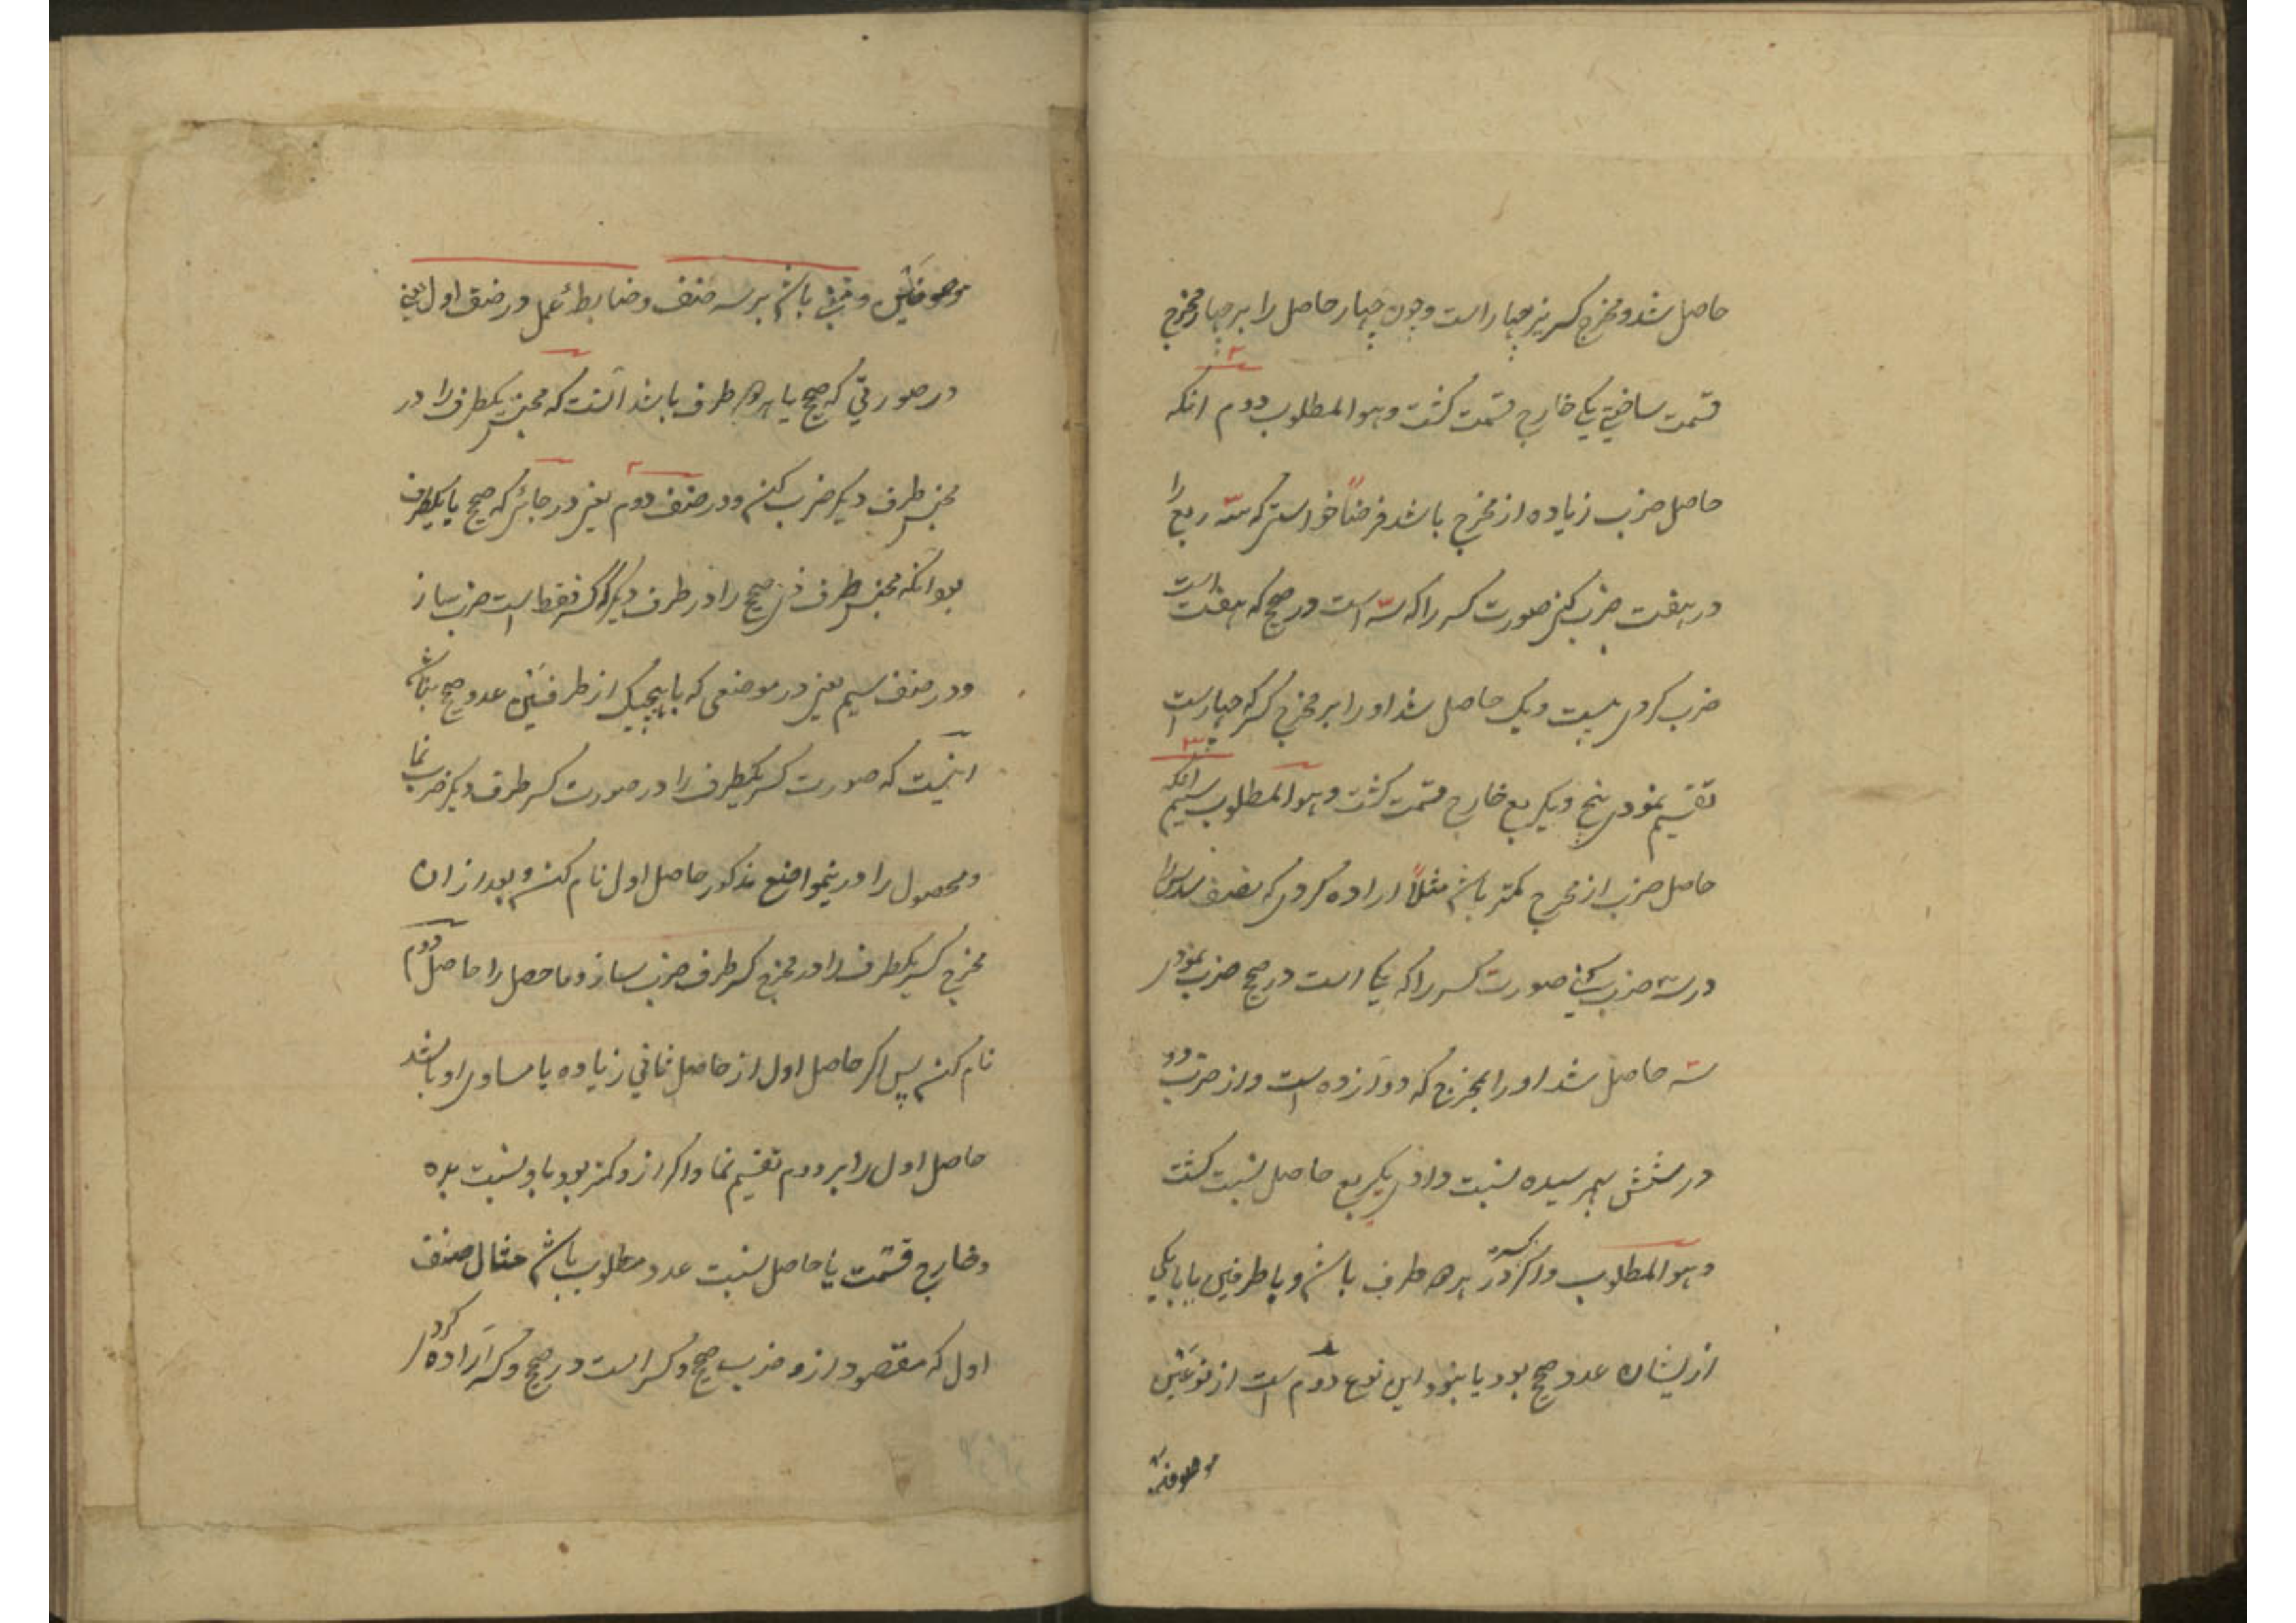 حاصل شد و مخرج کسر نیز چهار است و چون چهار حاصل را بر چهار مخرج
قسمت ساختی یکی خارج قسمت کشت و هو المطلوب دوم انکه
حاصل ضرب زیاده از مخرج باشد فرضاً خواستی که سه ربع را
در هفت ضرب کنی صورت کسر را که سه است در صحیح که هفت است
ضرب کردی بیست و یک حاصل شد او را بر مخرج کسر که چهار است
تقسیم نمودی پنج و یکربع خارج قسمت کشت و هو المطلوب سیم انکه
حاصل ضرب از مخرج کمتر باشد مثلاً اراده کردی که نصف سدس را
در سه ضرب کنی صورت کسر را که یکی است در صحیح ضرب نمودی
سه حاصل شد او را بمخرج که دوازده است و از ضرب دو
در شش بهم رسیده نسبت دادی یکربع حاصل نسبت کشت
و هو المطلوب و اکر کسر در هر دو طرف باشد و با طرفین یا با یکی
از یشان عدد صحیح بود یا نبود این نوع دوم است از نوعین
موصوفین
موصوفین و مبنی باشد بر سه صنف و ضابطهٔ عمل در صنف اول یعنی
در صورتی که صحیح با هر دو طرف باشد آنست که مجنس یکطرف را در
مجنس طرف دیکر ضرب کنی و در صنف دوم یعنی در جائی که صحیح با یکطرف
بود آنکه مجنس طرف ذی صحیح را در طرف دیکر که کسر فقط است ضرب ساز
و در صنف سیم یعنی در موضعی که با هیچیک از طرفین عدد صحیح نباشد
اینست که صورت کسر یکطرف را در صورت کسر طرف دیکر ضرب نما
و محصول را در ینمواضع مذکور حاصل اول نام کن و بعد از ان
مخرج کسر یکطرف را در مخرج کسر طرف ضرب ساز و ماحصل را حاصل دوم
نام کن پس اکر حاصل اول از حاصل ثانی زیاده یا مساوی او باشد
حاصل اول را بر دوم تقسیم نما و اکر از و کمتر بود باو نسبت بده
و خارج قسمت یا حاصل نسبت عدد مطلوب باشد مثال صنف
اول که مقصود از و ضرب صحیح و کسر است در صحیح و کسر اراده کردی